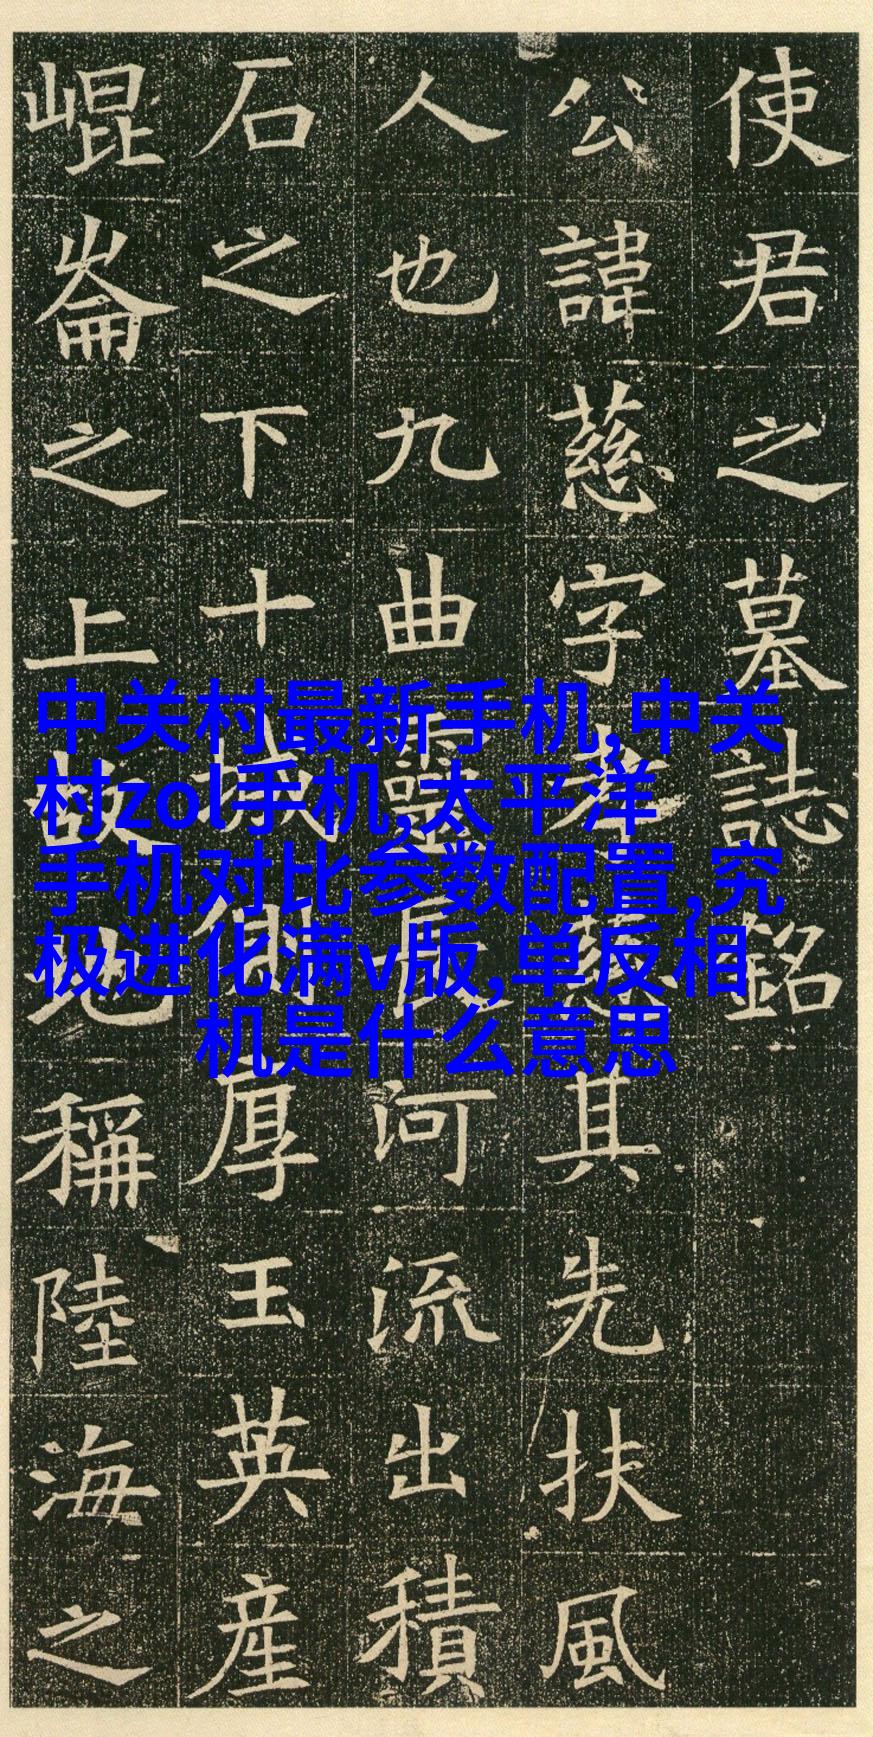 使君之墓誌銘
公諱慈字孝慈其先扶風
人也九曲靈長河流出積
石之下十城側厚玉英産
崐崙之上故地稱陸海之
中关村最新手机,中关
村zol手机,太平洋
手机对比参数配置,究
极进化满v版,单反相
机是什么意思